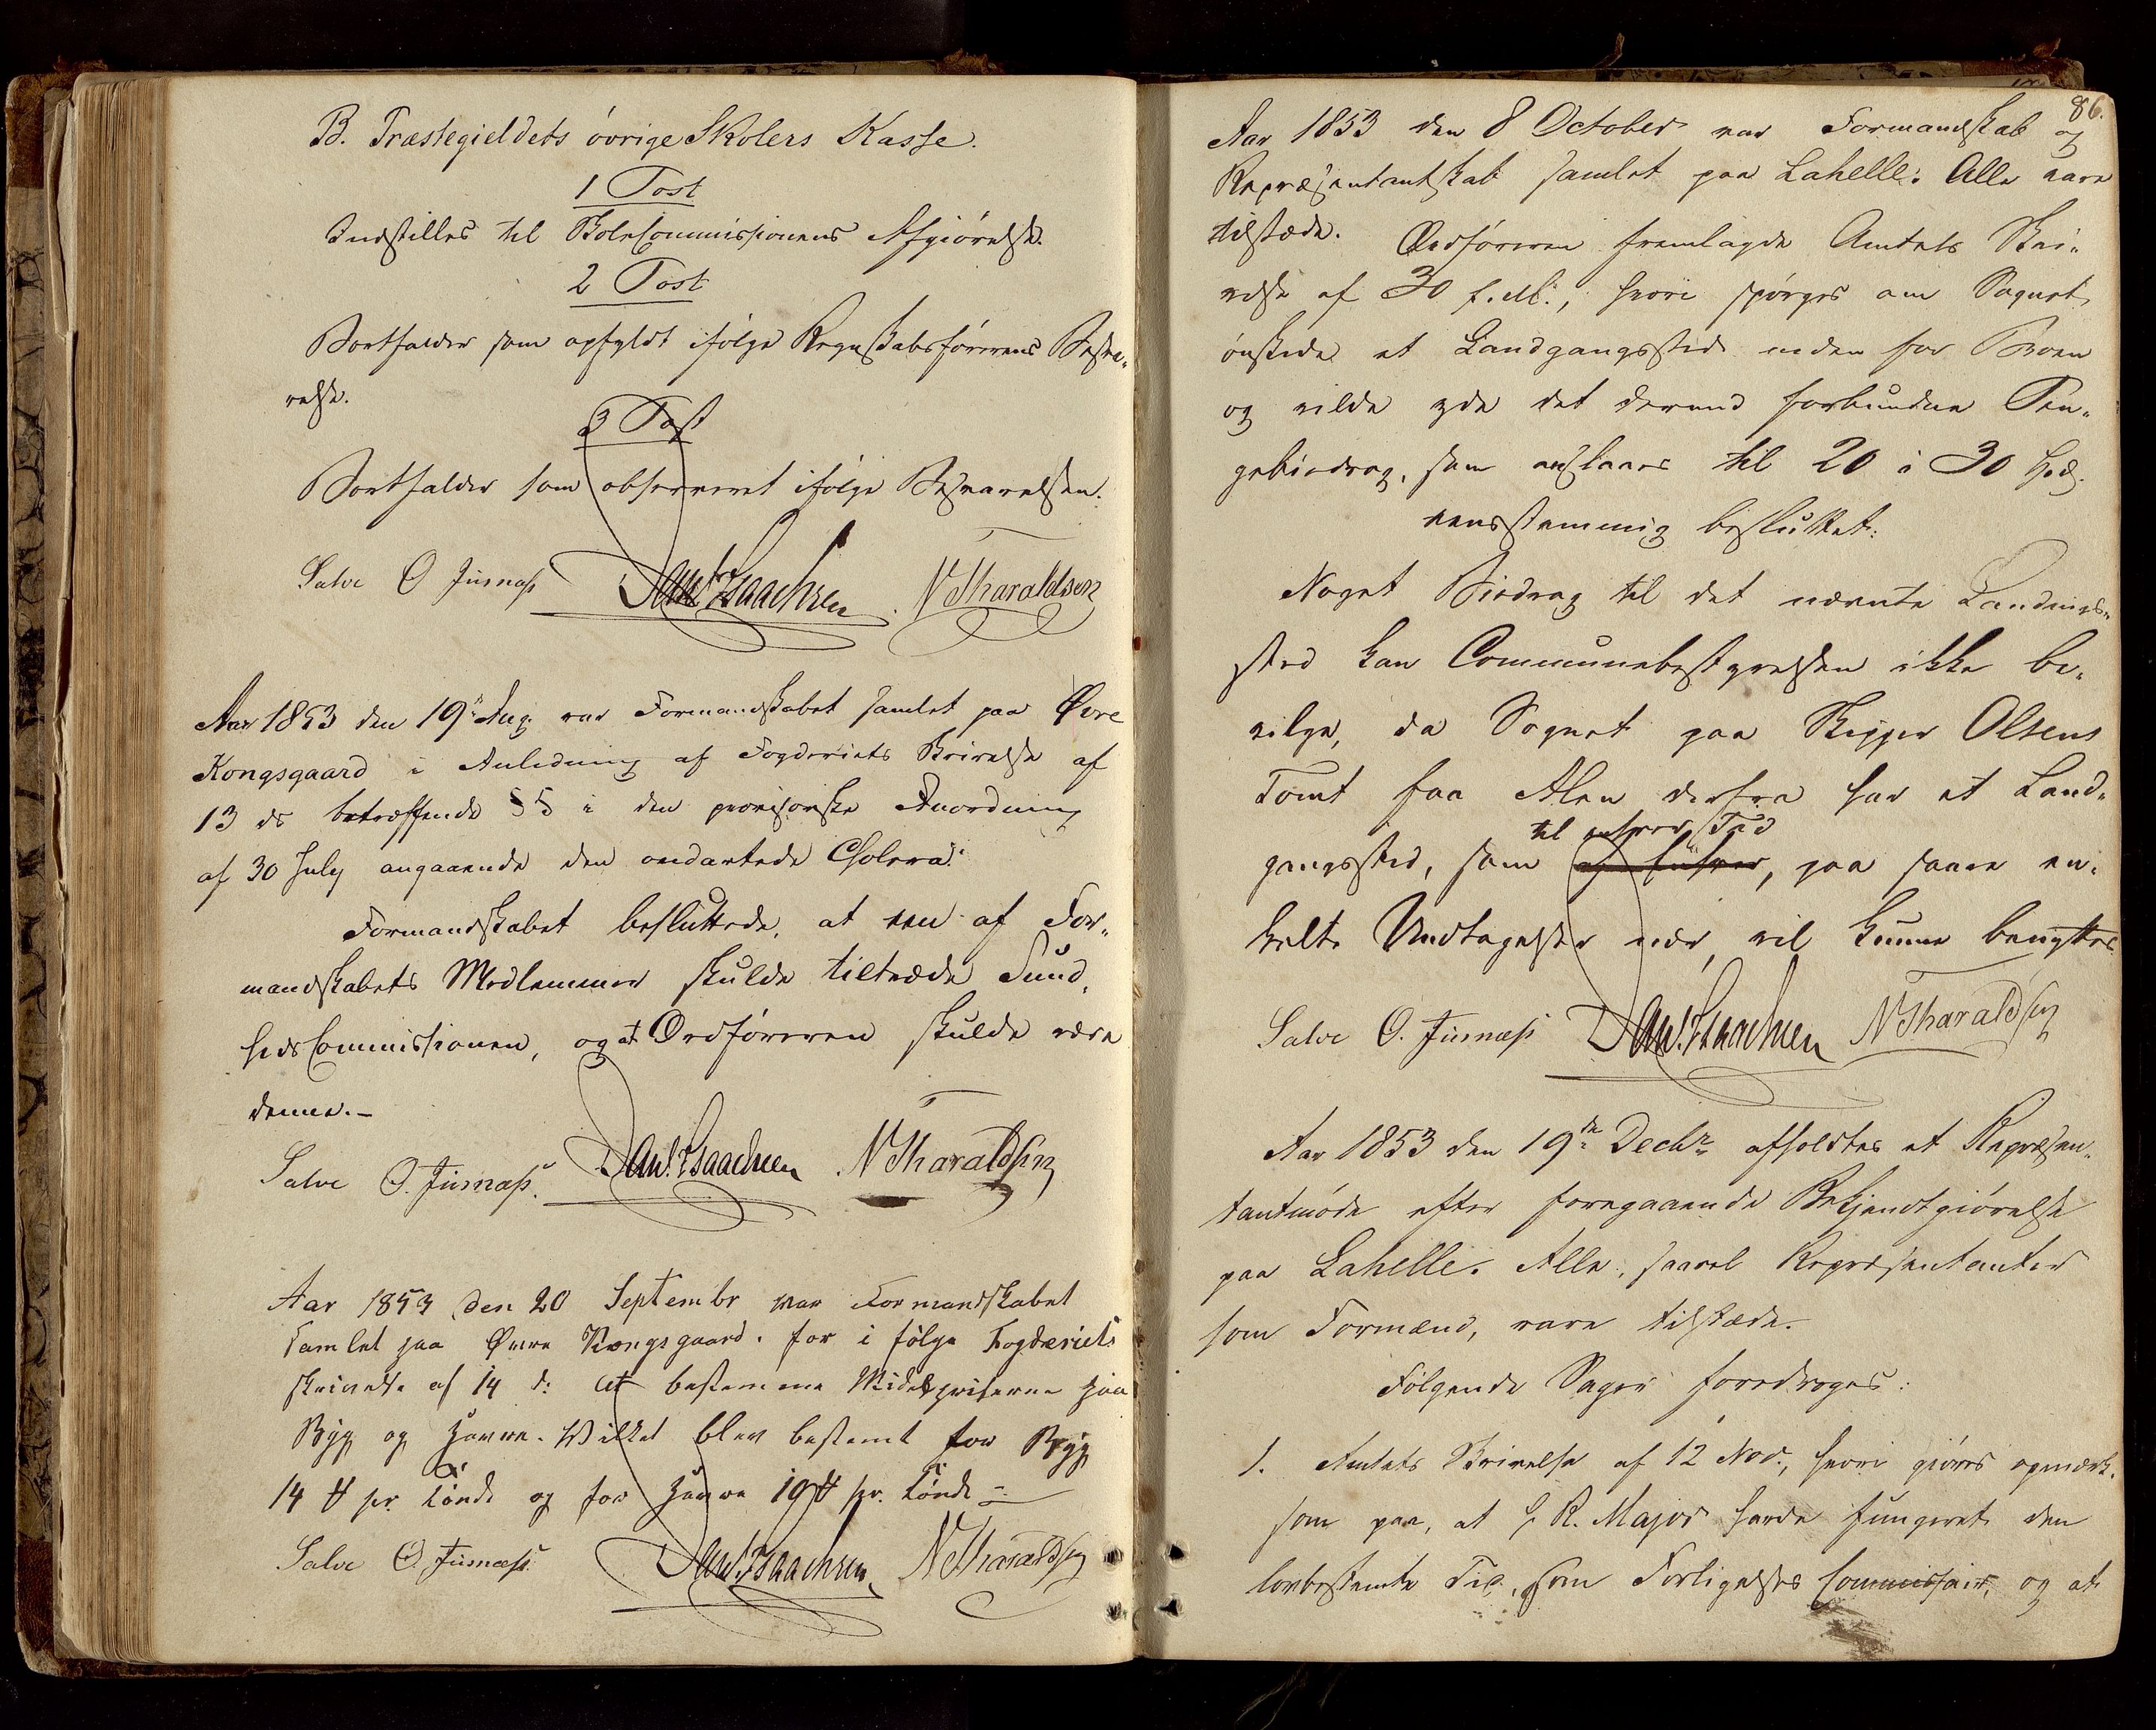 B. Præstegieldets øvrige Skolers Kasse.
1 Post
Indstilles til SkoleCommissionens Afgiørelse.
2 Post
Bortfalder som opfyldt ifølge Regnskabsførerens Besva-
relse.
3 Post
Bortfalder som observeret ifølge Besvarelsen.
Salve O Jusnæs Dan. Isaachsen N Tharaldsen
Aar 1853 den 19de Aug. var Formandskabet samlet paa Øvre
Kongsgaard i Anledning af Fogderiets Skrivelse af
13 ds betræffende §5 i den provisoriske Anordning
af 30 July angaaende den ondartede Cholera.
Formandskabet besluttede, at een af For-
mandskabets Medlemmer skulde tiltræde Sund-
hedsCommissionen, og at Ordføreren skulde være
denne.-
Salve O. Jusnæs. Dan. Isaachsen N Tharaldsen
Aar 1853 den 20 Septembr var Formandskabet
samlet paa Øvre Kongsgaard. for i følge Fogderiets
skrivelse af 14 d: at bestemme Middelpriserne paa
Byg og Havre. Hvilket blev bestemt for Byg
14 ₶ pr. Tønde og for Havre 10 ₶ pr. Tønde -
Salve O. Jusnæs. Dan. Isaachsen N Tharaldsen
86.
Aar 1853 den 8 October var Formandskab og
Repræsentantskab samlet paa Lahelle. Alle vare
tilstæde. Ordføreren fremlagde Amtets Skri-
velse af 30 f. M., hvori spørges om Sognet
ønskede et Landgangssted neden for Boen
og vilde yde det derved forbundne Pen-
gebidrag, som anslaaes til 20 à 30 Spd.
eensstemmig besluttet:
Noget Bidrag til det nævnte Landings-
sted kan Communebestyrelsen ikke be-
vilge, da Sognet paa Skipper Olsens
Tomt faa Alen derfra har et Land-
til enhver Tid
gangssted, som , paa faare en-
kelte Undtagelser nær, vil kunne benyttes
Salve O. Jusnæs Dan. Isaachsen N Tharaldsen
Aar 1853 den 19de Decbr afholdtes et Repræsen-
tantmøde efter foregaaende Bekjendtgiørelse
paa Lahelle. Alle, saavel Repræsentanter
som Formænd, vare tilstæde.
Følgende Sager foredroges:
1. Amtets Skrivelse af 12 Nov., hvori giøres opmærk-
som paa, at R. Major havde fungeret den
lovbestemte Tid, som Forligelses Commissair, og at